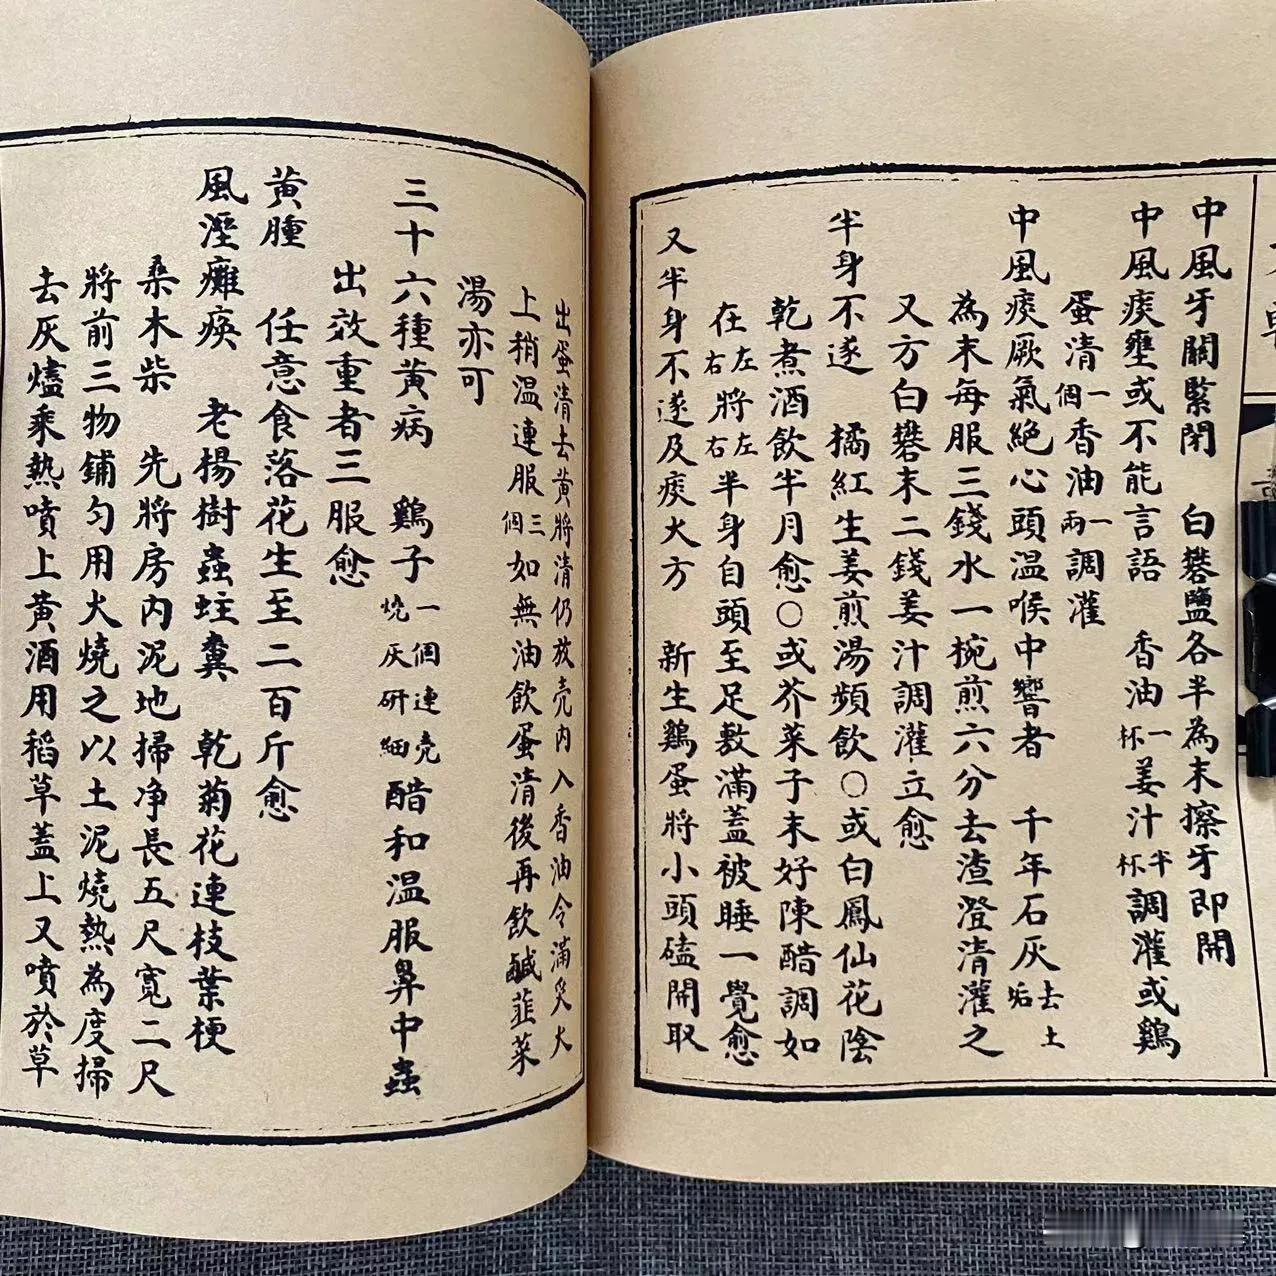 中風牙關緊閉　白礬鹽各半為末擦牙即開
中風痰壅或不能言語　香油一杯姜汁半杯調灌或鷄
蛋清一個香油一兩調灌
中風痰厥氣絶心頭温喉中響者　千年石灰去土垢
為末每服三錢水一椀煎六分去渣澄清灌之
又方白礬末二錢姜汁調灌立愈
半身不遂　橘紅生姜煎湯頻飲○或白鳳仙花陰
乾煮酒飲半月愈○或芥菜子末好陳醋調如
在左右將左右半身自頭至足敷滿蓋被睡一覺愈
又半身不遂及痰火方　新生鷄蛋將小頭磕開取
出蛋清去黃將清仍放壳內入香油令滿炙大
上稍温連服三個如無油飲蛋清後再飲鹹韮菜
湯亦可
三十六種黃病　鷄子一個連壳燒灰研細醋和温服鼻中蟲
出效重者三服愈
黃腫　任意食落花生至二百斤愈
風溼癱瘓　老楊樹蟲蛀糞　乾菊花連枝葉梗
桑木柴　先將房內泥地掃净長五尺寬二尺
將前三物鋪勻用火燒之以土泥燒熱為度掃
去灰燼乘熱噴上黃酒用稻草蓋上又噴於草